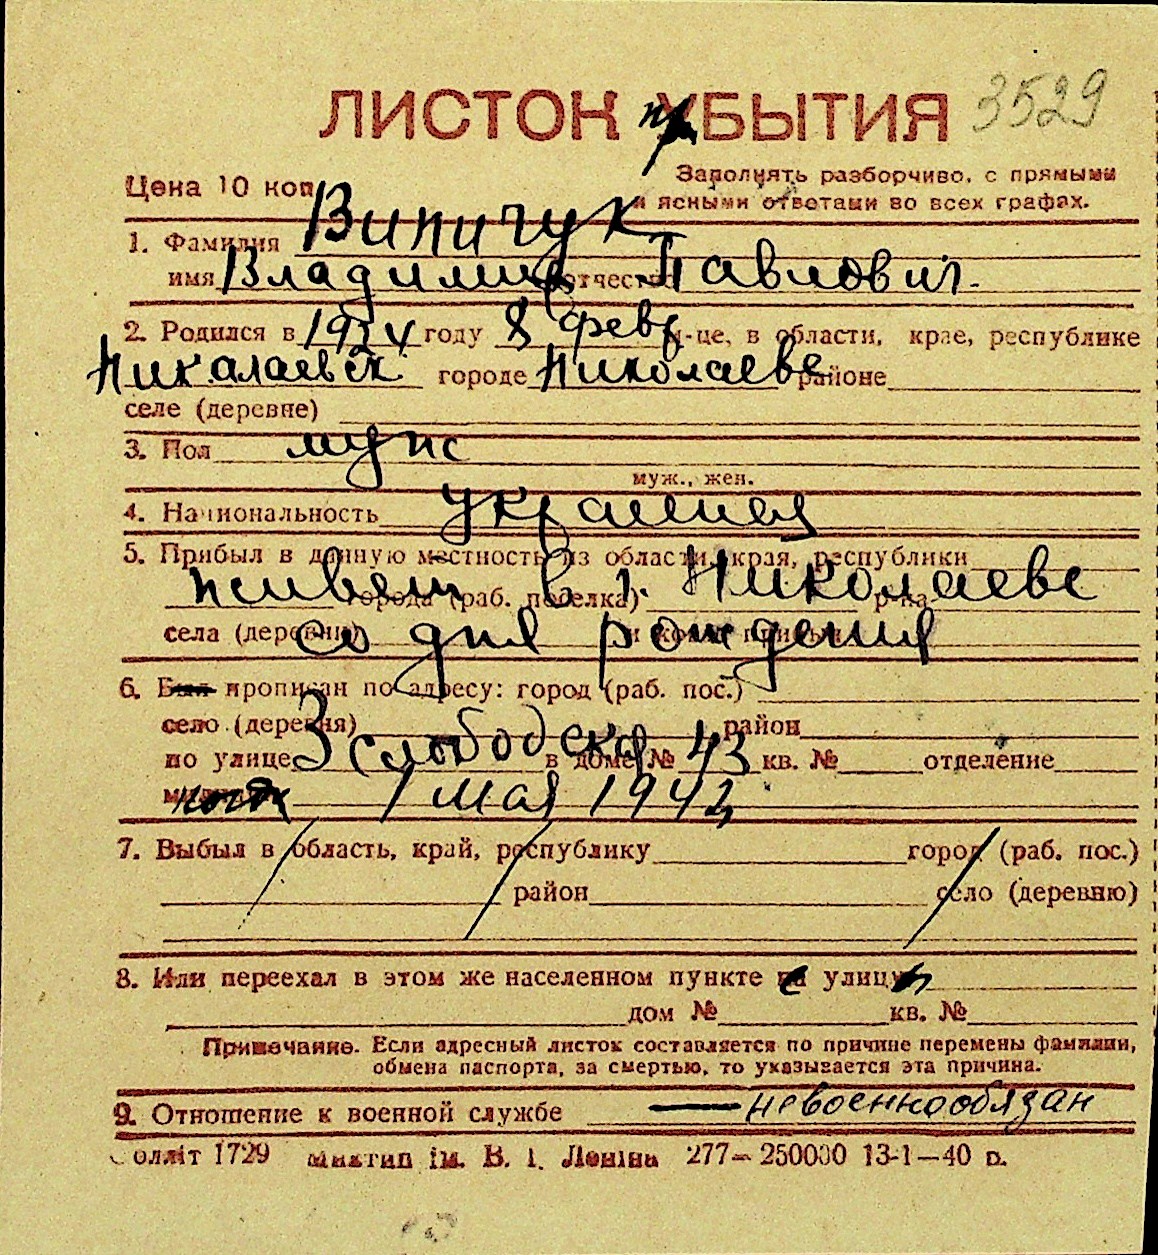 ЛИСТОК прБЫТИЯ 3529
Цена 10 коп. Заполнять разборчиво, с прямыми
и ясными ответами во всех графах.
1. Фамилия Випичук
имя Владимир отчество Павлович
2. Родился в 1924 году 8 февр м-це, в области, крае, республике
Николаевск городе Николаеве районе
селе (деревне)
3. Пол муж
муж., жен.
4. Национальность украинец
5. Прибыл в данную местность из области, края, республики
живет в г. Николаеве города (раб. поселка) р-на
села (деревни) со дня рождения
6. Был прописан по адресу: город (раб. пос.)
село (деревня) район
по улице 3 слободская в доме № 43 кв. № отделение
1 мая 1942
7. Выбыл в область, край, республику город (раб. пос.)
район село (деревню)
8. Или переехал в этом же населенном пункте с улицы
дом № кв. №
Примечание. Если адресный листок составляется по причине перемены фамилии,
обмена паспорта, за смертью, то указывается эта причина.
9. Отношение к военной службе — невоеннообязан
Облліт 1729 Миктип ім. В. І. Леніна 277—250000 13-1—40 р.